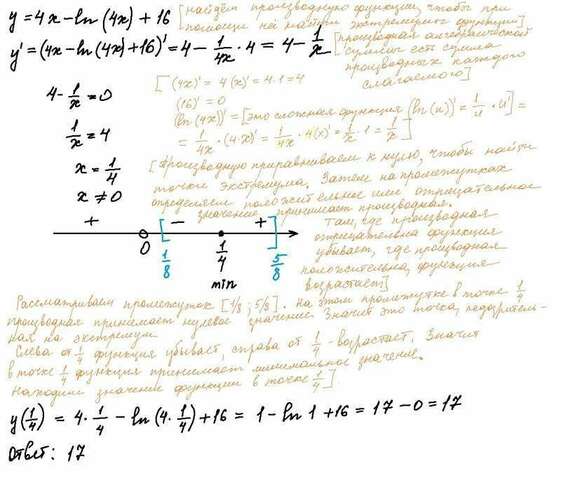 y = 4x - ln(4x) + 16 [найдём производную функции, чтобы при
помощи неё найти экстремумы функции]
y' = (4x - ln(4x) + 16)' = 4 - 1/4x · 4 = 4 - 1/x [производная алгебраической
суммы есть сумма
производных каждого
слагаемого]
[(4x)' = 4(x)' = 4·1 = 4
(16)' = 0
(ln(4x))' = [это сложная функция (ln(u))' = 1/u · u'] =
= 1/4x · (4x)' = 1/4x · 4(x)' = 1/x · 1 = 1/x]
4 - 1/x = 0
1/x = 4
x = 1/4
x ≠ 0
[Производную приравниваем к нулю, чтобы найти
точки экстремума. Затем на промежутках
определяем положительное или отрицательное
значение принимает производная.
Там, где производная
отрицательна функция
убывает, где производная
положительна, функция
возрастает]
+ [ - + ]
0 1/8 1/4 5/8
min
Рассматриваем промежуток [1/8; 5/8]. На этом промежутке в точке 1/4
производная принимает нулевое значение. Значит это точка, подозритель-
ная на экстремум.
Слева от 1/4 функция убывает, справа от 1/4 - возрастает. Значит
в точке 1/4 функция принимает минимальное значение.
Находим значение функции в точке 1/4]
y(1/4) = 4 · 1/4 - ln(4 · 1/4) + 16 = 1 - ln 1 + 16 = 17 - 0 = 17
Ответ: 17